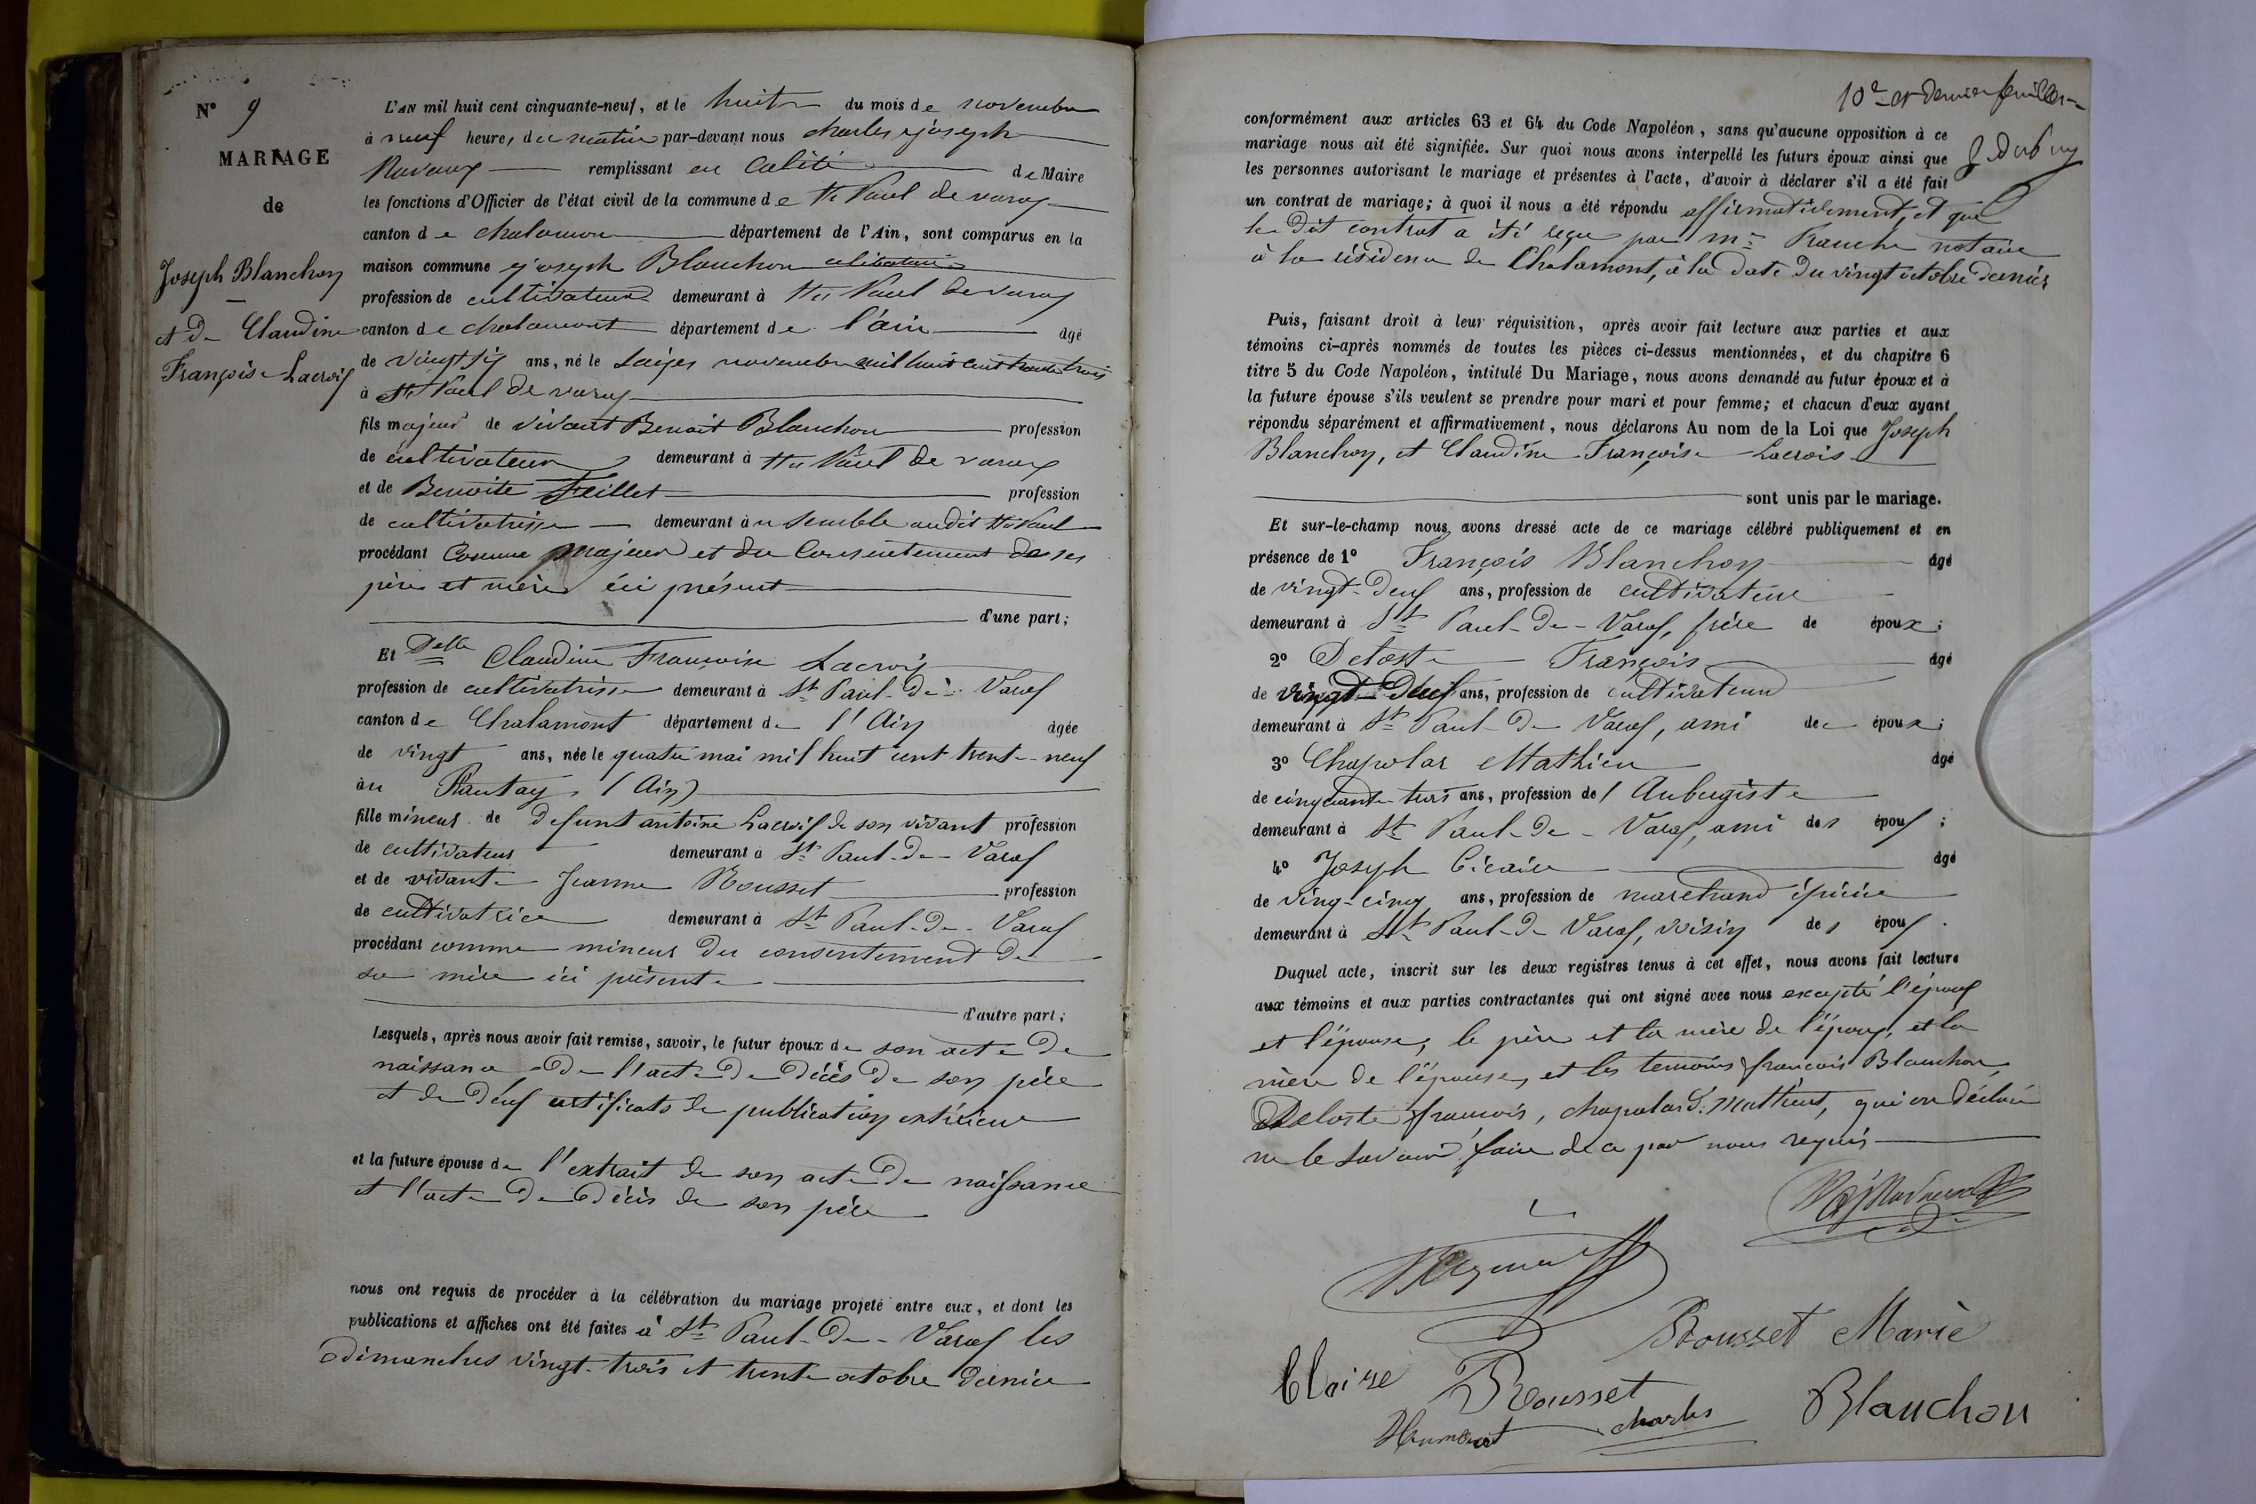 N° 9
MARIAGE
de
Joseph Blanchon
et de Claudine
Françoise Lacroix
L'AN mil huit cent cinquante-neuf, et le huit du mois de novembre
à neuf heures du matin par-devant nous charles joseph
remplissant en calité de Maire
les fonctions d'Officier de l'état civil de la commune de St Paul de varax
canton de chalamon département de l'Ain, sont comparus en la
maison commune joseph Blanchon
profession de cultivateur demeurant à St Paul de varax
canton de chalamont département de l'ain âgé
de vingt six ans, né le seizes novembre mil huit cent trente trois
à St Paul de varax
fils majeur de vivant Benoit Blanchon profession
de cultivateur demeurant à St Paul de varax
et de Benoite Feillet profession
de cultivatrisse demeurant ensemble audit St Paul
procédant comme majeur et du consentement de ses
père et mère ici présent
d'une part;
Et Delle Claudine Françoise Lacroix
profession de cultivatrisse demeurant à St Paul-de-Varax
canton de Chalamont département de l'Ain âgée
de vingt ans, née le quatre mai mil huit cent trente-neuf
au Plantay (Ain)
fille mineur de defunt antoine Lacroix de son vivant profession
de cultivateur demeurant à St Paul-de-Varax
et de vivante Jeanne Rousset profession
de cultivatrice demeurant à St Paul-de-Varax
procédant comme mineur du consentement de
sa mère ici présente
d'autre part;
Lesquels, après nous avoir fait remise, savoir, le futur époux de son acte de
naissance de l'acte de décès de son père
et de deux certificats de publication extérieur
et la future épouse de l'extrait de son acte de naissance
et l'acte de décès de son père
nous ont requis de procéder à la célébration du mariage projeté entre eux, et dont les
publications et affiches ont été faites à St Paul-de-Varax les
dimanches vingt-trois et trente octobre dernier
10e et dernier feuillet
J. Dubuy
conformément aux articles 63 et 64 du Code Napoléon, sans qu'aucune opposition à ce
mariage nous ait été signifiée. Sur quoi nous avons interpellé les futurs époux ainsi que
les personnes autorisant le mariage et présentes à l'acte, d'avoir à déclarer s'il a été fait
un contrat de mariage; à quoi il nous a été répondu affirmativement, et que
le dit contrat a été reçu par Me notaire
à la résidence de Chalamont, à la date du vingt octobre dernier
Puis, faisant droit à leur réquisition, après avoir fait lecture aux parties et aux
témoins ci-après nommés de toutes les pièces ci-dessus mentionnées, et du chapitre 6
titre 5 du Code Napoléon, intitulé Du Mariage, nous avons demandé au futur époux et à
la future épouse s'ils veulent se prendre pour mari et pour femme; et chacun d'eux ayant
répondu séparément et affirmativement, nous déclarons Au nom de la Loi que Joseph
Blanchon, et Claudine Françoise Lacroix
sont unis par le mariage.
Et sur-le-champ nous avons dressé acte de ce mariage célébré publiquement et en
présence de 1° François Blanchon âgé
de vingt-deux ans, profession de cultivateur
demeurant à St Paul-de-Varax, frère de époux;
2° Deloste François âgé
de vingt-deux ans, profession de cultivateur
demeurant à St Paul-de-Varax, ami de époux;
3° Chapolar Mathieu âgé
de cinquante trois ans, profession de Aubergiste
demeurant à St Paul-de-Varax, ami des époux;
4° Joseph Cicaire âgé
de ving-cinq ans, profession de marchand épicier
demeurant à St Paul-de-Varax, voisin des époux.
Duquel acte, inscrit sur les deux registres tenus à cet effet, nous avons fait lecture
aux témoins et aux parties contractantes qui ont signé avec nous excepté l'époux
et l'épouse, le père et la mère de l'époux, et la
mère de l'épouse, et les temoins francois Blanchon,
Deloste francois, chapolard Mathieu, qui on déclaré
ne le savoir faire de ce par nous requis
Rousset Marie
Claire Rousset
charles
Blanchon